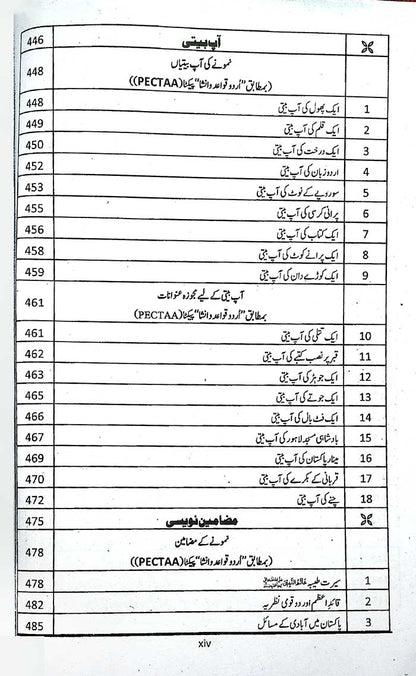 آپ بیتی 446
نمونے کی آپ بیتیاں 448
(بمطابق "اُردو قواعد و انشا" پیکٹا (PECTAA))
1 ایک پھول کی آپ بیتی 448
2 ایک قلم کی آپ بیتی 449
3 ایک درخت کی آپ بیتی 450
4 اردو زبان کی آپ بیتی 452
5 سو روپے کے نوٹ کی آپ بیتی 453
6 پرانی کرسی کی آپ بیتی 455
7 ایک کتاب کی آپ بیتی 456
8 ایک پرانے کوٹ کی آپ بیتی 458
9 ایک کوڑے دان کی آپ بیتی 459
آپ بیتی کے لیے مجوزہ عنوانات 461
بمطابق "اُردو قواعد و انشا" پیکٹا (PECTAA)
10 ایک تتلی کی آپ بیتی 461
11 قبر پر نصب کتبے کی آپ بیتی 462
12 ایک جوہڑ کی آپ بیتی 463
13 ایک جوتے کی آپ بیتی 465
14 ایک فٹ بال کی آپ بیتی 466
15 بادشاہی مسجد لاہور کی آپ بیتی 467
16 مینار پاکستان کی آپ بیتی 469
17 قربانی کے بکرے کی آپ بیتی 470
18 چنے کی آپ بیتی 472
مضامین نویسی 475
نمونے کے مضامین 478
(بمطابق "اُردو قواعد و انشا" پیکٹا (PECTAA))
1 سیرت طیبہ 478
2 قائدِ اعظم اور دو قومی نظریہ 482
3 پاکستان میں آبادی کے مسائل 485
xiv